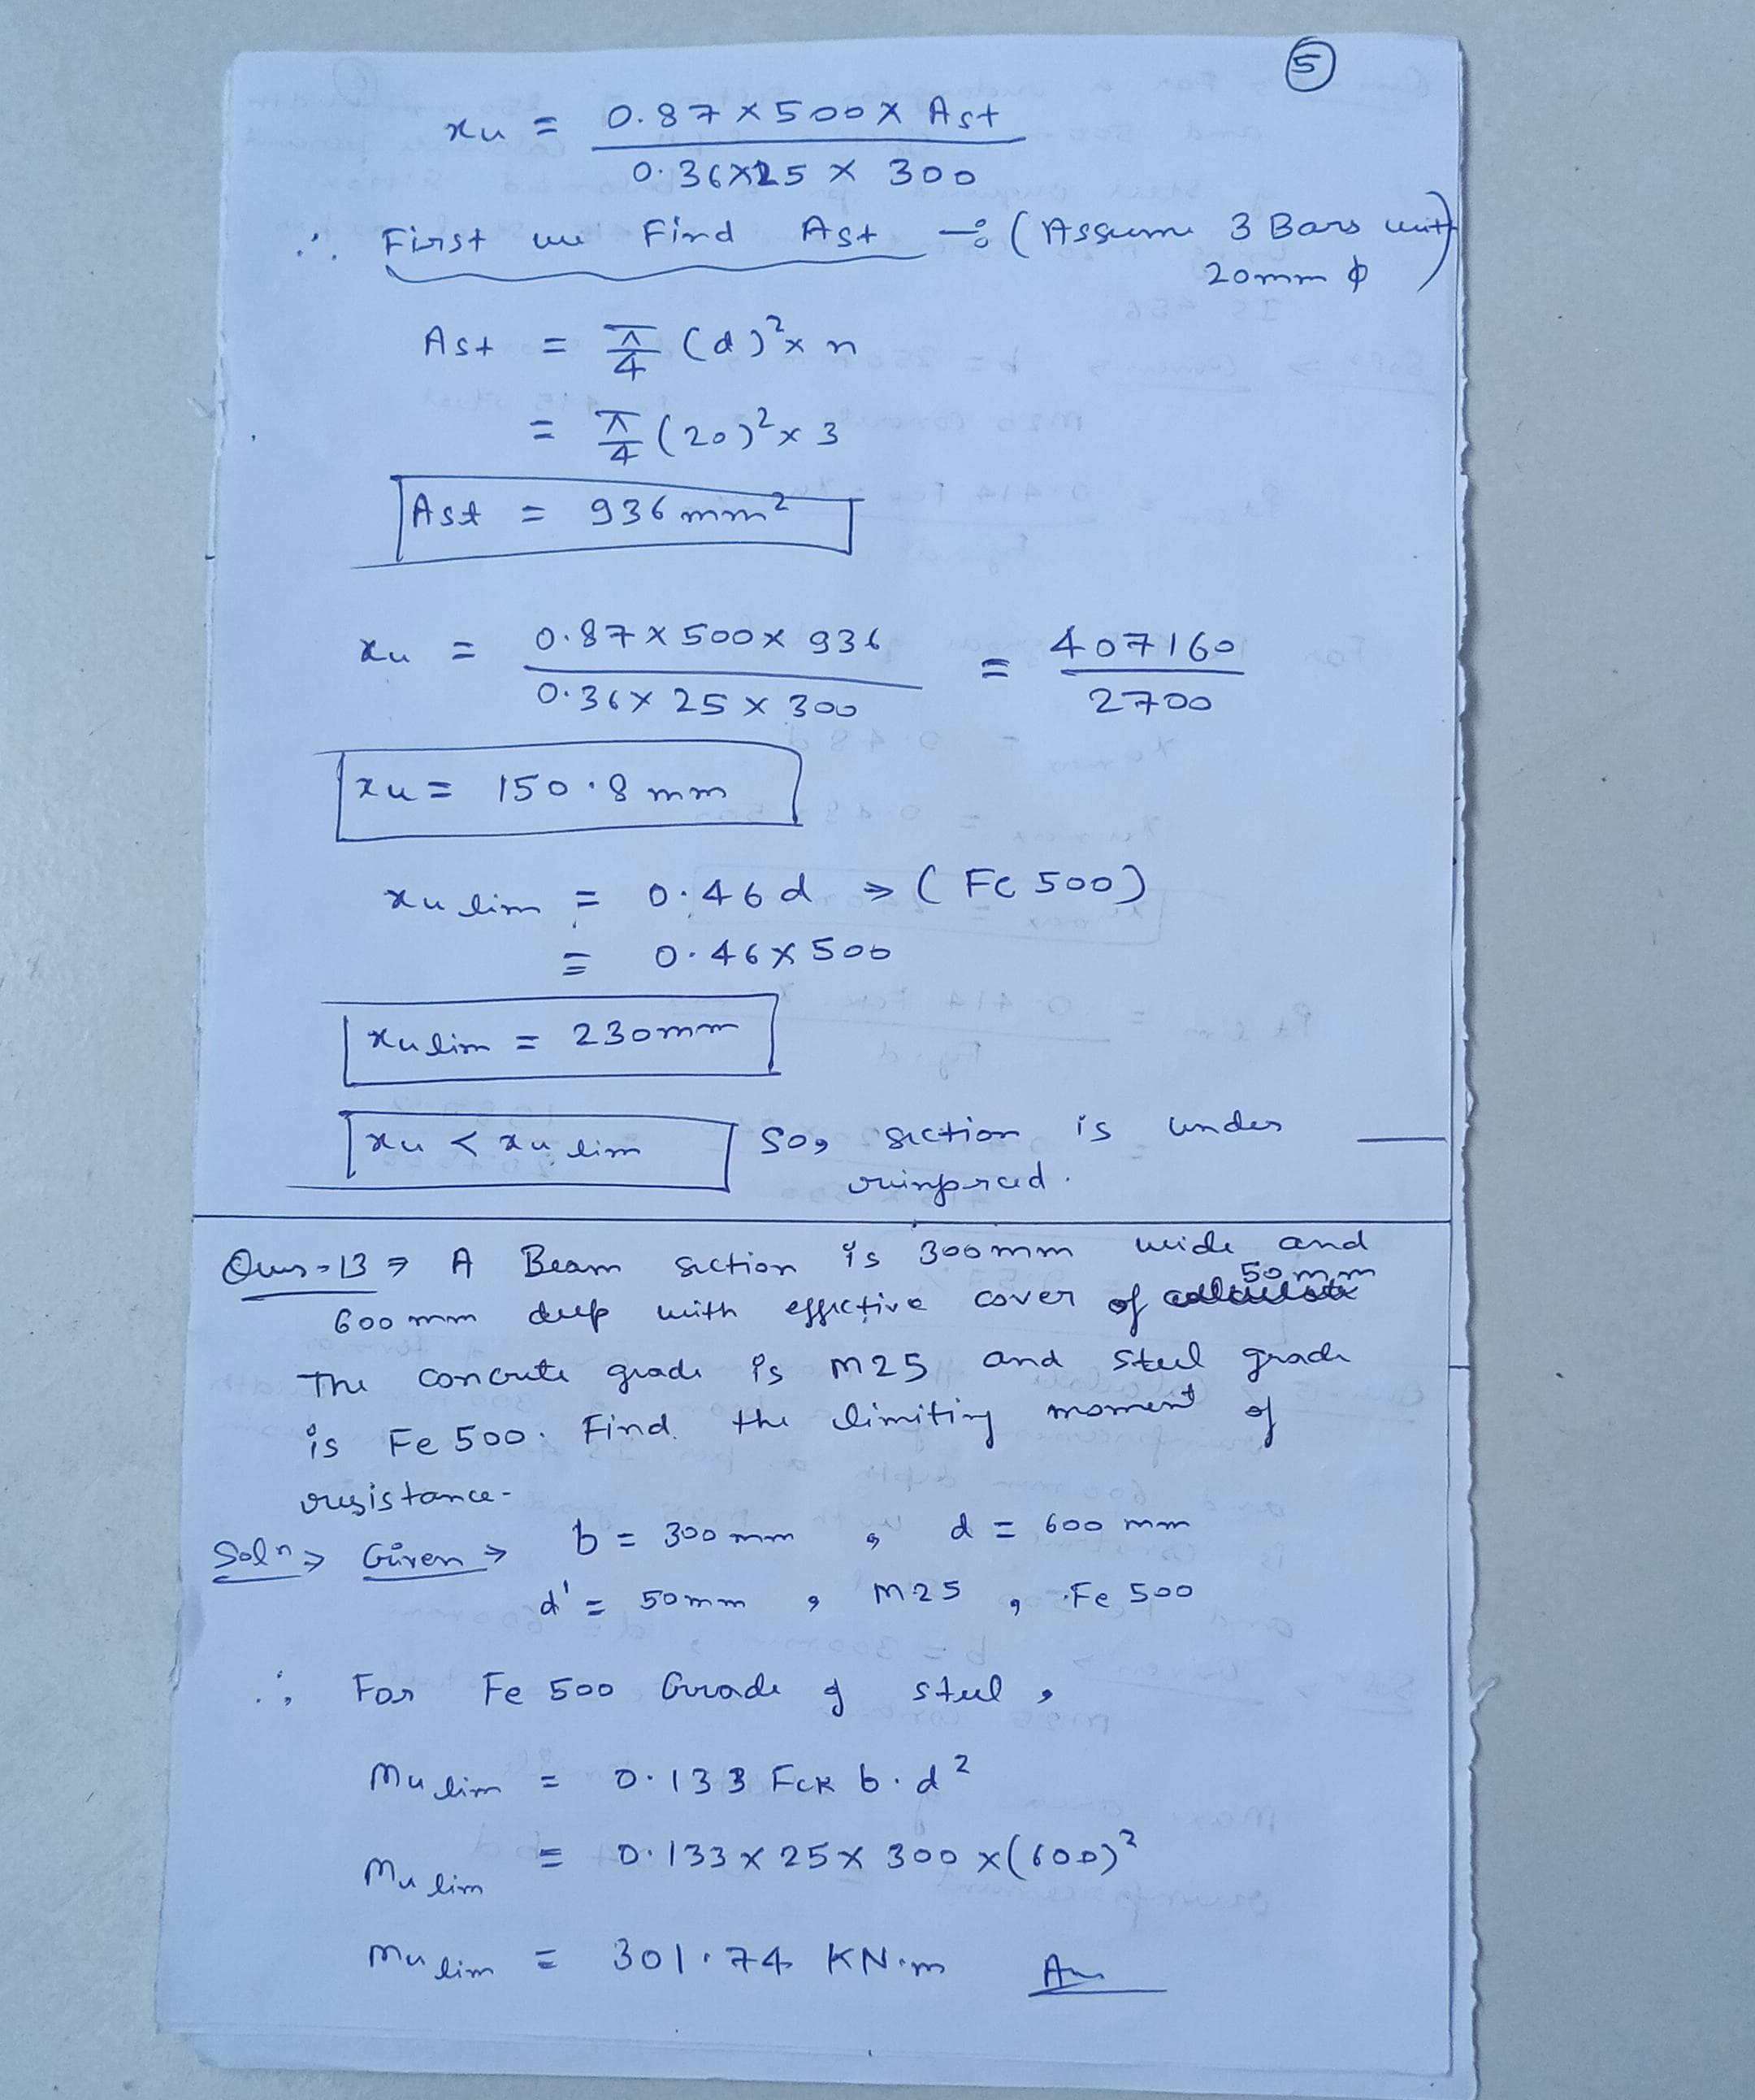 5
xu = 0.87 x 500 x Ast / 0.36 x 25 x 300
∴ First we Find Ast ÷ (Assume 3 Bars with 20mm ϕ)
Ast = π/4 (d)² x n
= π/4 (20)² x 3
Ast = 936 mm²
xu = 0.87 x 500 x 936 / 0.36 x 25 x 300 = 407160 / 2700
xu = 150.8 mm
xu lim = 0.46 d ⇒ (Fe 500)
= 0.46 x 500
xu lim = 230mm
xu < xu lim So, section is under
reinforced.
Ques-13 ⇒ A Beam section is 300mm wide and
600 mm deep with effective cover of 50mm
The concrete grade is M25 and steel grade
is Fe 500. Find the limiting moment of
resistance.
Solⁿ ⇒ Given ⇒ b = 300 mm , d = 600 mm
d' = 50mm , M25 , Fe 500
∴ For Fe 500 Grade of steel ,
Mu lim = 0.133 Fck b.d²
Mu lim = 0.133 x 25 x 300 x (600)²
Mu lim = 301.74 KN.m Ans